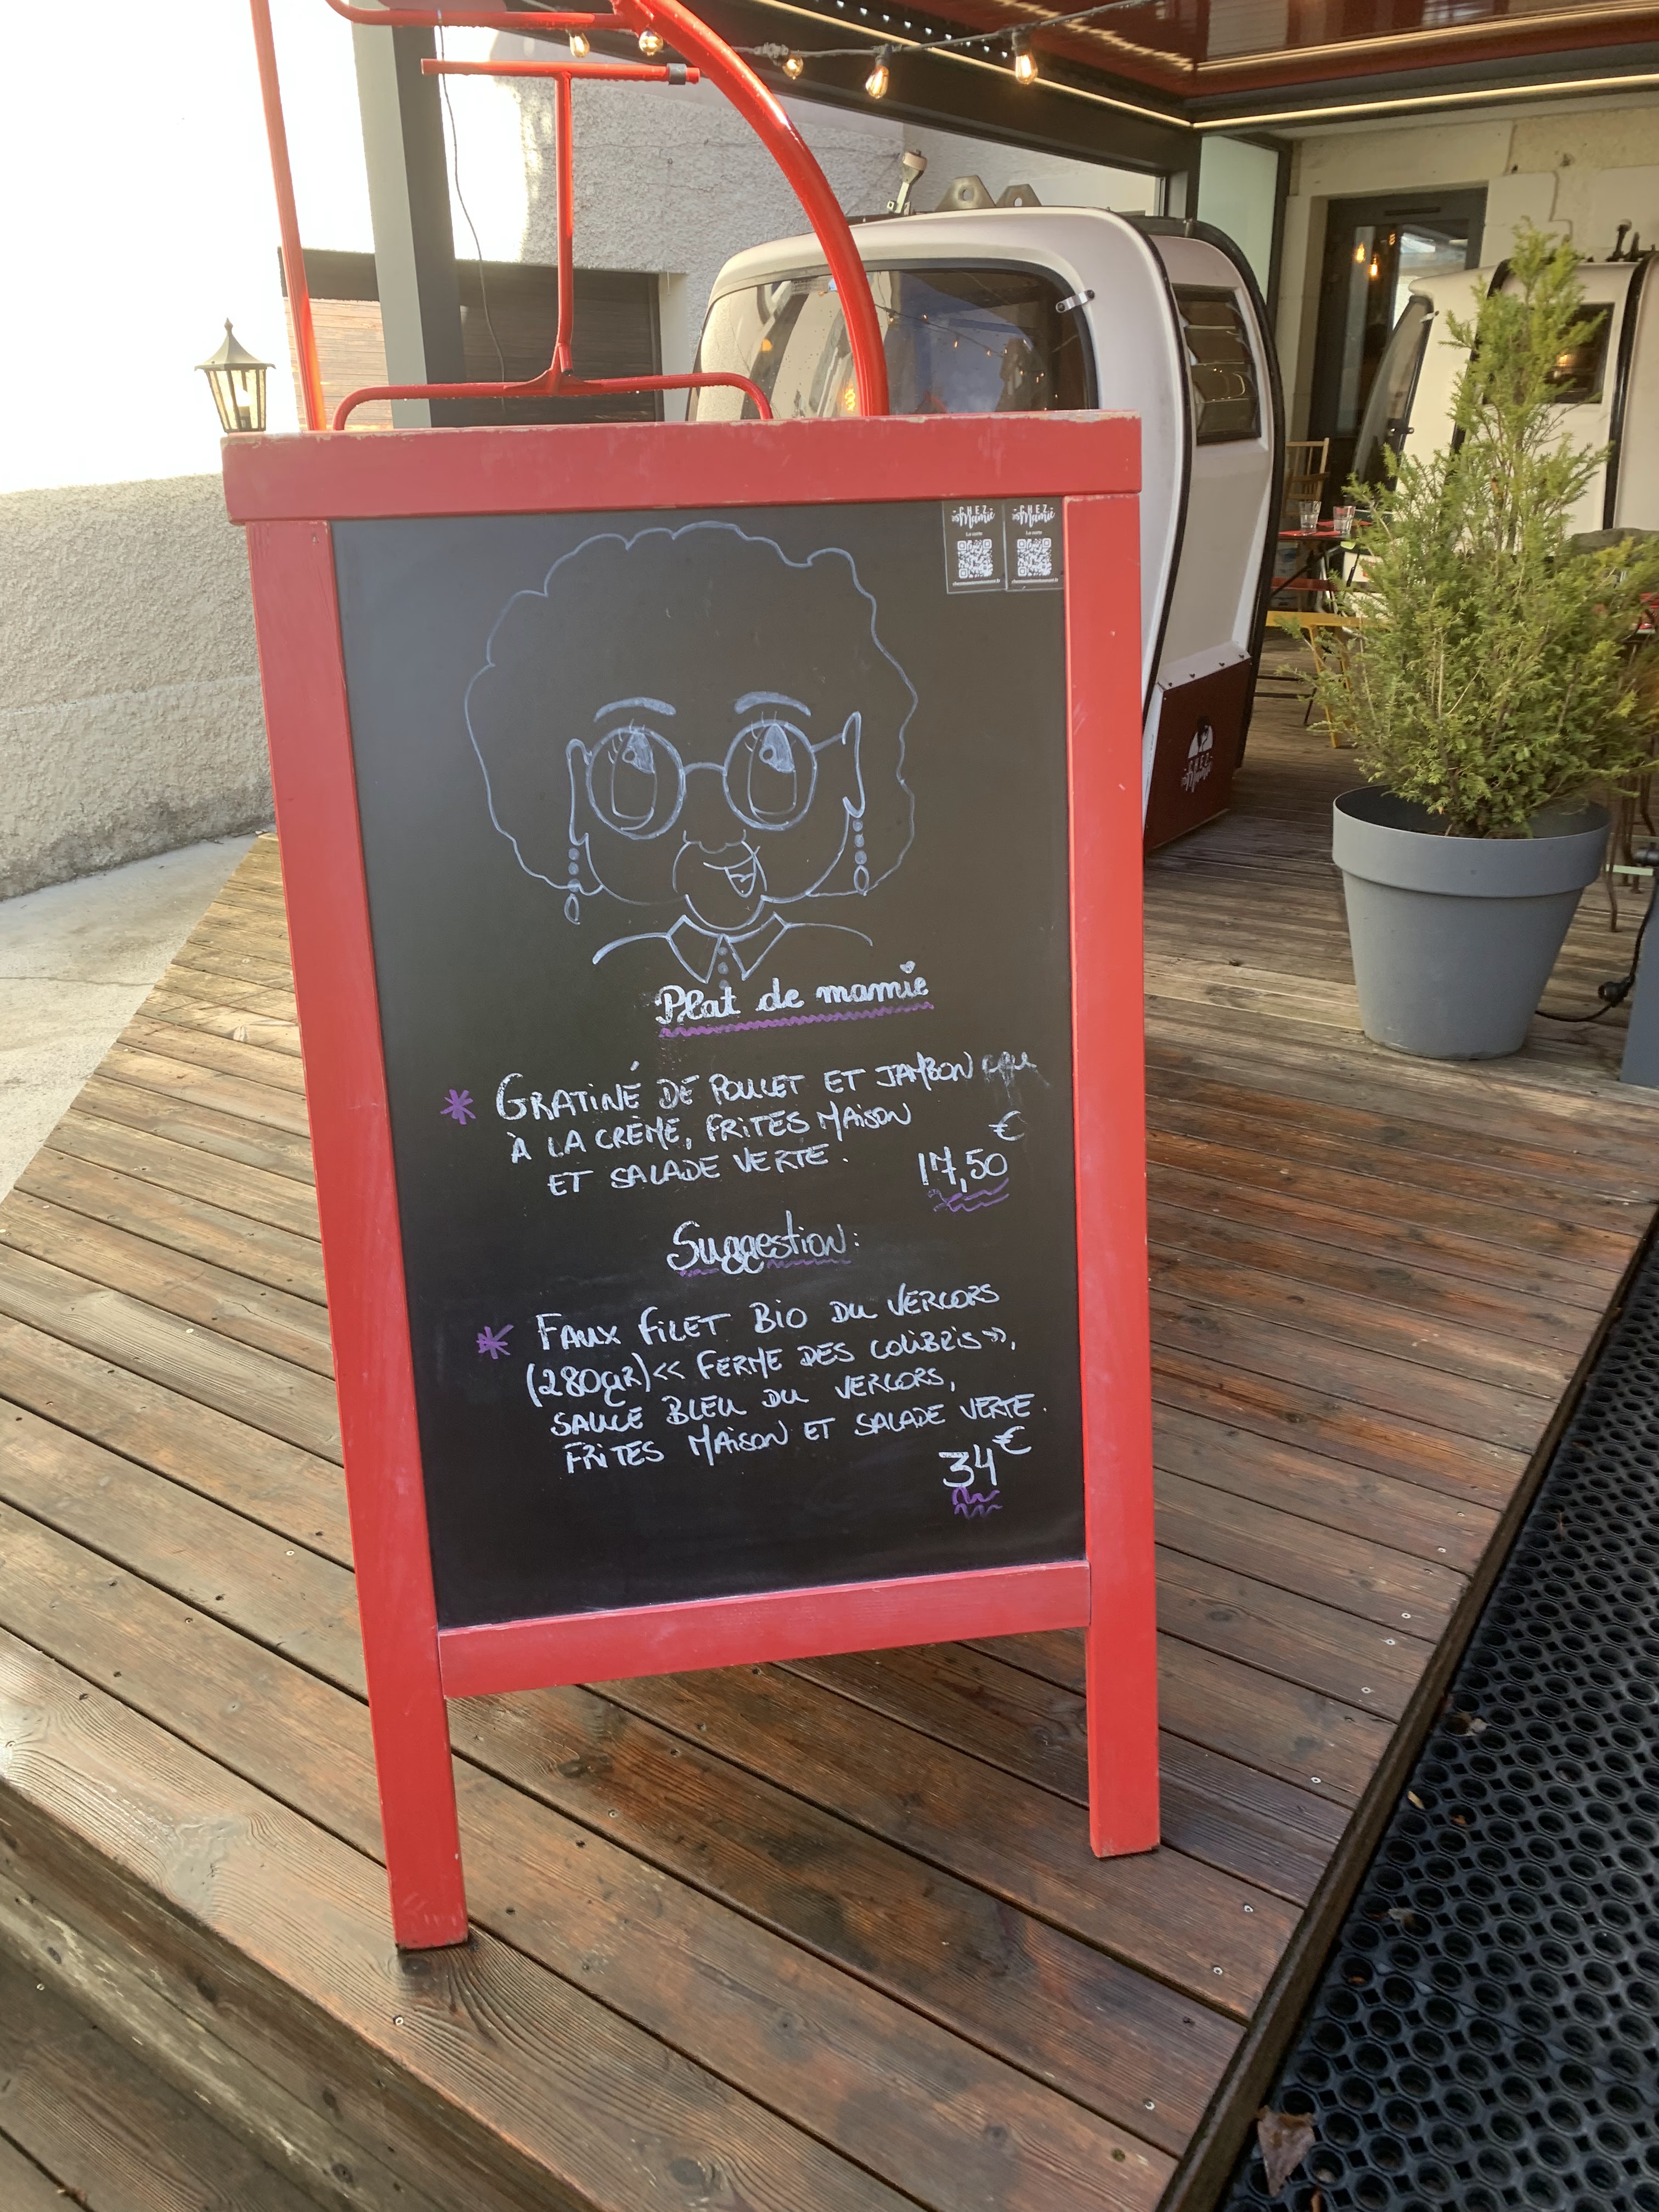 CHEZ Mamie
La carte
CHEZ Mamie
La carte
CHEZ
Mamie
Plat de mamie
* GRATINÉ DE POULET ET JAMBON
À LA CRÈME, FRITES MAISON
ET SALADE VERTE.
€
17,50
Suggestion:
* FAUX FILET BIO DU VERCORS
(280gR) « FERME DES COLIBRIS »,
SAUCE BLEU DU VERCORS,
FRITES MAISON ET SALADE VERTE.
34€